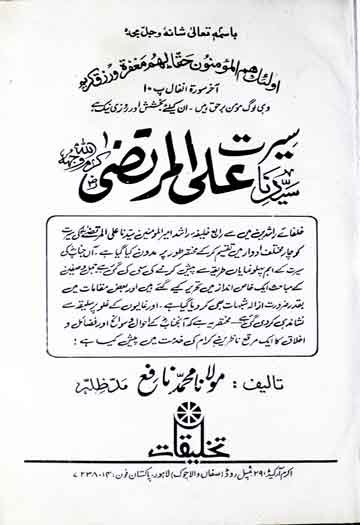 باسمہ تعالیٰ شانہ وجل مجدہ
اولئك هم المؤمنون حقا لهم مغفرة ورزق كريم
آخر سورۃ انفال پ ۱۰
وہی لوگ مومن برحق ہیں۔ ان کیلئے بخشش اور روزی نیک ہے
سیرت
سیدنا علی المرتضیٰ کرم اللہ وجہہ
خلفائے راشدین میں سے رابع خلیفہ راشد امیر المؤمنین سیدنا علی المرتضیٰ کی سیرت
کو چار مختلف ادوار میں تقسیم کر کے مختصر طور پر مدون کیا گیا ہے۔ آں جناب کی
سیرت کے اہم پہلو نمایاں طریقہ سے پیش کرنے کی سعی کی گئی ہے جمل و صفین
کے مباحث ایک خاص انداز میں تحریر کیے گئے ہیں اور بعض مقامات میں
بقدر ضرورت ازالہ شبہات بھی کر دیا گیا ہے۔ اور غالیوں کے غلو پر سلیقہ سے
نشاندہی کر دی گئی ہے۔ مختصر یہ ہے کہ آنجناب کے احوال و سوانح اور فضائل و
اخلاق کا ایک مرقع ناظرین کرام کی خدمت میں پیش کیا ہے :
تالیف : مولانا محمد نافع مدظلہ
تخلیقات
اکرم آرکیڈ، ۲۹ ٹمپل روڈ (صفاں والا چوک) لاہور، پاکستان فون: ۷۲۳۸۰۱۴